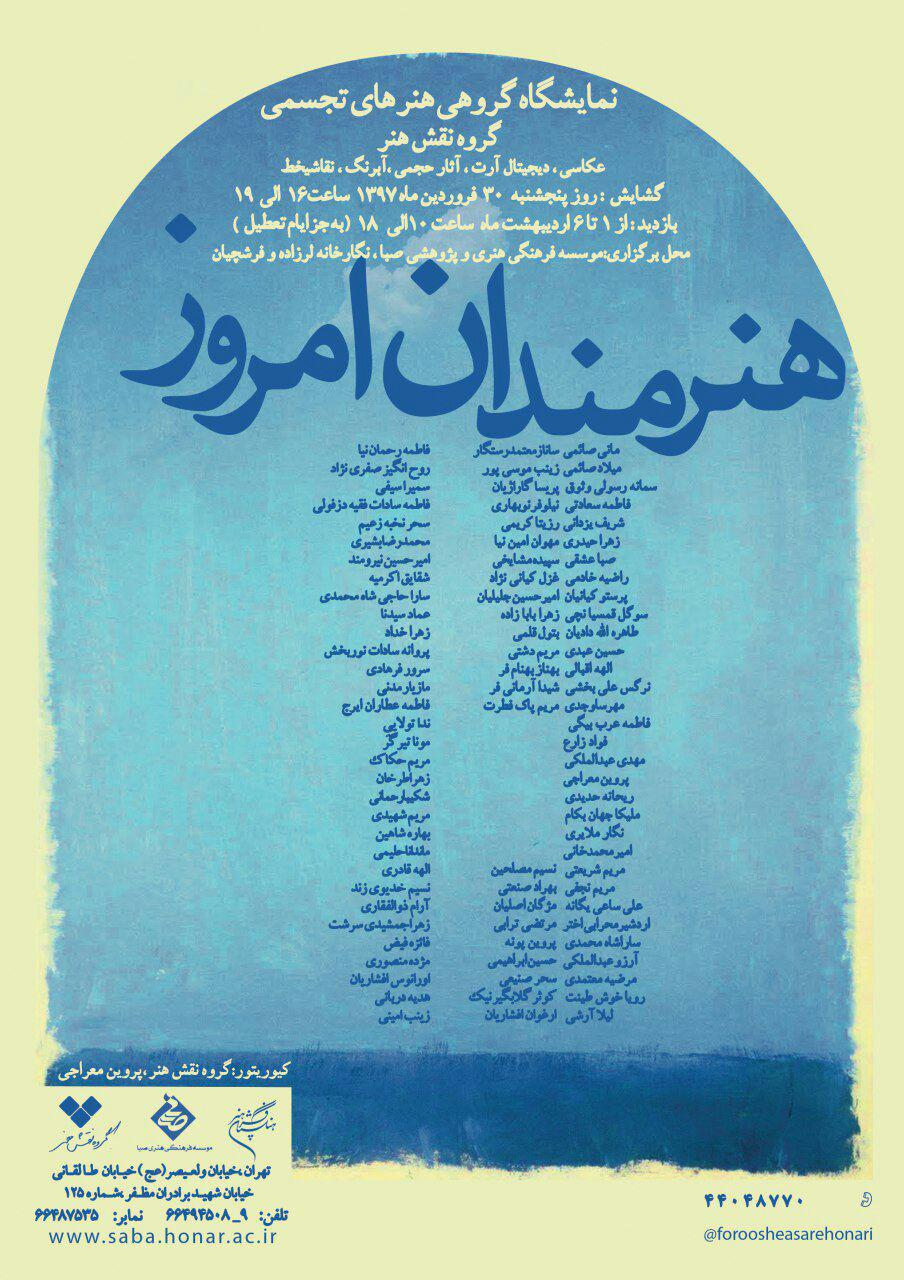 نمایشگاه گروهی هنر های تجسمی
گروه نقش هنر
عکاسی ، دیجیتال آرت ، آثار حجمی ،آبرنگ ، نقاشیخط
گشایش : روز پنجشنبه ۳۰ فروردین ماه ۱۳۹۷ ساعت ۱۶ الی ۱۹
بازدید : از ۱ تا ۶ اردیبهشت ماه ساعت ۱۰ الی ۱۸ ( به جز ایام تعطیل )
محل برگزاری:موسسه فرهنگی هنری و پژوهشی صبا ، نگارخانه لرزاده و فرشچیان
هنرمندان امروز
مانی صائمی ساناز معتمد رستگار فاطمه رحمان نیا
میلاد صائمی زینب موسی پور روح انگیز صفری نژاد
سمانه رسولی وثوق پریسا گاراژیان سمیرا سیفی
فاطمه سعادتی نیلوفر نوبهاری فاطمه سادات فقیه دزفولی
شریف یزدانی رزیتا کریمی سحر نخبه زعیم
زهرا حیدری مهوان امین نیا محمدرضا بشیری
صبا عشقی سپیده مشایخی امیر حسین نیرومند
راضیه خادمی غزل کیانی نژاد شقایق اکرمیه
پرستو کیانیان امیرحسین جلیلیان سارا حاجی شاه محمدی
سوگل قمسیا نچی زهرا بابا زاده عماد سیدنا
طاهره الله دادیان بتول قلمی زهرا خداد
حسین عبدی مریم دشتی پروانه سادات نوربخش
الهه اقبالی بهناز بهنام فر سرور فرهادی
نرگس علی بخشی شیدا آرمانی فر مازیار مدنی
مهرسا وجدی مریم پاک فطرت فاطمه عطاران ایرج
فاطمه عرب بیگی ندا تولایی
فواد زارع مونا تیرگر
مهدی عبدالملکی مریم حکاک
پروین معراجی زهرا طرخان
ریحانه حدیدی شکیبا رحمانی
ملیکا جهان بکام مریم شهیدی
نگار ملایری بهاره شاهین
امیر محمدخانی ماندانا حلیمی
مریم شریعتی نسیم مصلحین الهه قادری
مریم نجفی بهراد صنعتی نسیم خدیوی زند
علی ساعی یگانه مژگان اصلیان آرام ذوالفقاری
اردشیر محرابی اختر مرتضی ترابی زهرا جمشیدی سرشت
سارا شاه محمدی پروین پونه فائزه فیض
آرزو عبدالملکی حسین ابراهیمی مژده منصوری
مرضیه معتمدی سحر صنیعی اورانوس افشاریان
رویا خوش طینت کوثر گلابگیر نیک هدیه دربانی
لیلا آرشی ارغوان افشاریان زینب امینی
کیوریتور:گروه نقش هنر ،پروین معراجی
فرهنگستان هنر
صبا
موسسه فرهنگی هنری صبا
گروه نقش هنر
تهران ،خیابان ولیعصر(عج ) خیابان طالقانی
خیابان شهید برادران مظفر ،شماره ۱۲۵
تلفن: ۹ـ ۶۶۴۹۴۵۰۸ نمابر: ۶۶۴۸۷۵۳۵
www.saba.honar.ac.ir
۴۴۰۴۸۷۷۰
@foroosheasarehonari